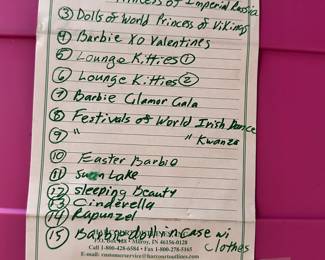 Princess of Imperial Russia
③ Dolls of World Princess of Vikings
④ Barbie XO Valentines
⑤ Lounge Kitties ①
⑥ Lounge Kitties ②
⑦ Barbie Glamor Gala
⑧ Festivals of World Irish Dance
⑨ " " Kwanza
⑩ Easter Barbie
⑪ Swan Lake
⑫ Sleeping Beauty
⑬ Cinderella
⑭ Rapunzel
⑮ Barbie doll in Case w/
Clothes
P.O. Box • Milroy, IN 46156-0128
Call 1-800-428-6584 • Fax 1-800-278-5165
E-mail: customerservice@harcourtoutlines.com